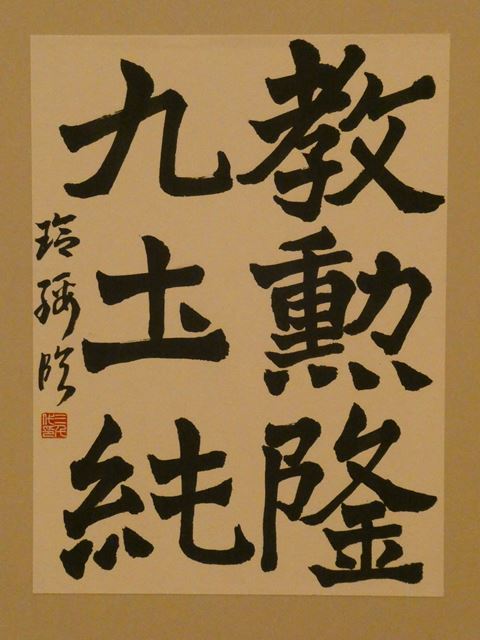 教勲隆
九土純
臨